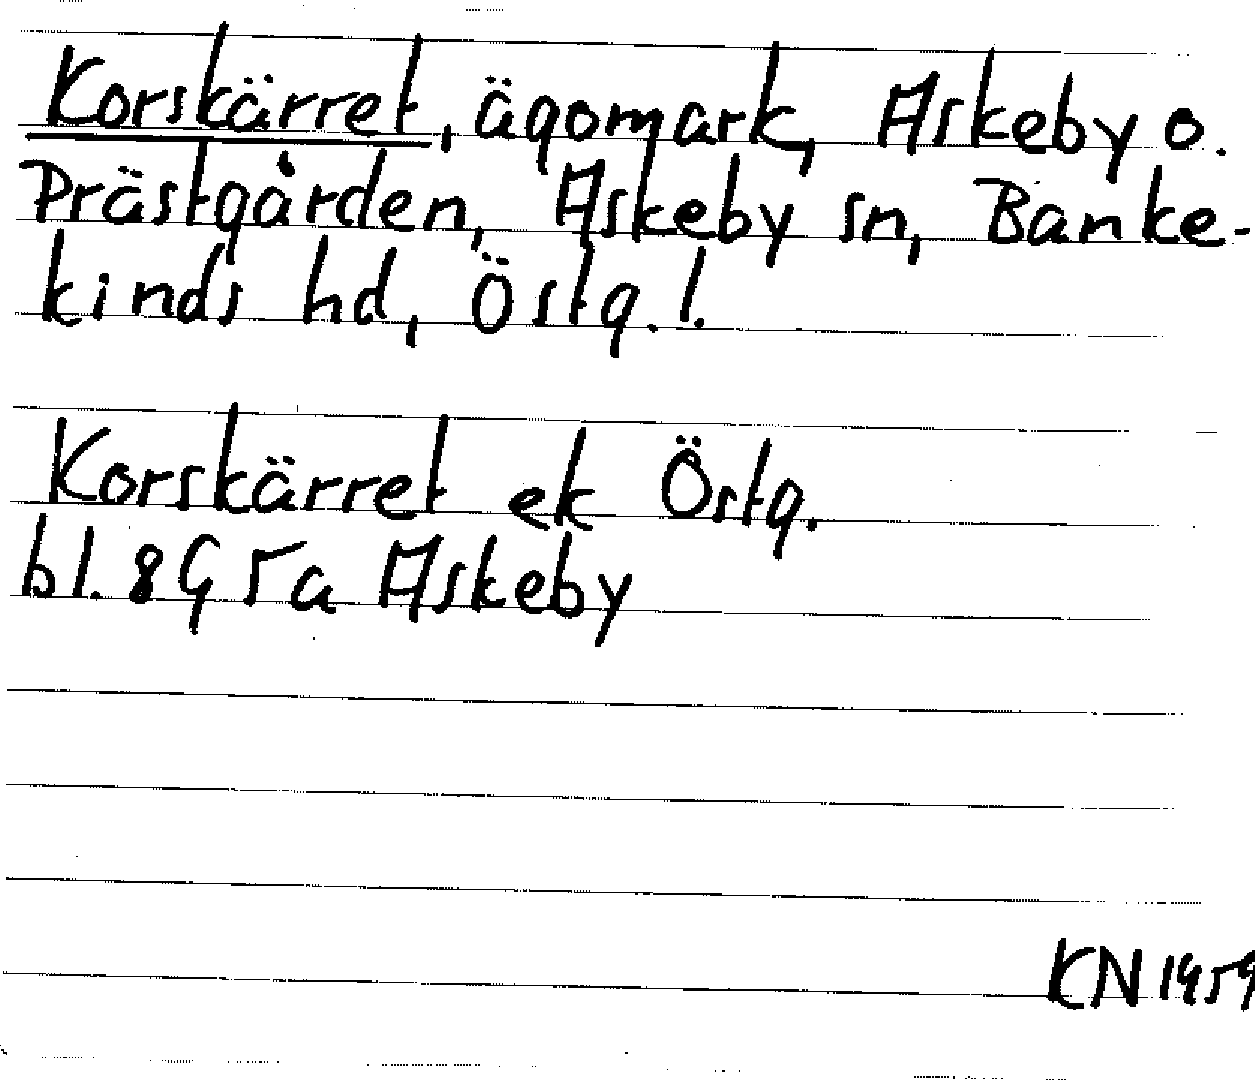 Korskärret, ägomark, Askeby o.
Prästgården, Askeby sn, Banke-
kinds hd, Östg. l.
Korskärret ek Östg.
bl. 8G 5a Askeby
KN 1959